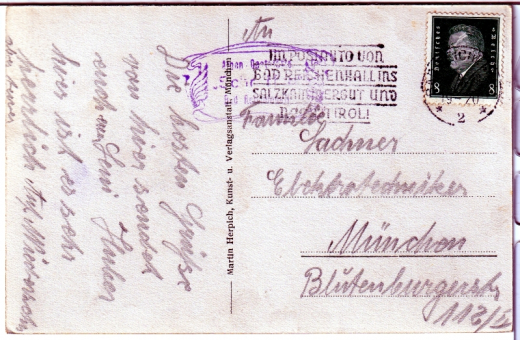 Die besten Grüße
von hier sendet
euch Leni Huber
hier ist es sehr
Martin Herpich, Kunst- u. Verlagsanstalt, München
An
IM POSTAUTO VON
BAD REICHENHALL INS
SALZKAMMERGUT UND
NACH TIROL!
Deutsches Reich
8 8
2
Familie
Lachner
Elektrotechniker
München
Blutenburgerstr.
112/I